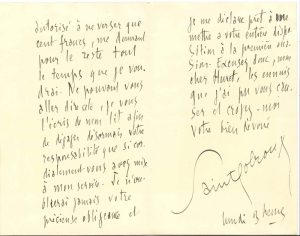 autorisé à ne verser que
cent francs, me donnant
pour le reste tout
le temps que je vou
drai. Ne pouvant vous
aller dire cela, je vous
l'écris de mon lit afin
de dégager désormais votre
responsabilité que si cor
dialement vous avez mis
à mon service. Je n'ou
blierai jamais votre
précieuse obligeance et
je me déclare prêt à vous
mettre à votre entière dispo
sition à la première occa
sion. Excusez donc, mon
cher Huret, les ennuis
que j'ai pu vous cau
ser et croyez-moi
votre bien dévoué
Saint-Pol-Roux
lundi